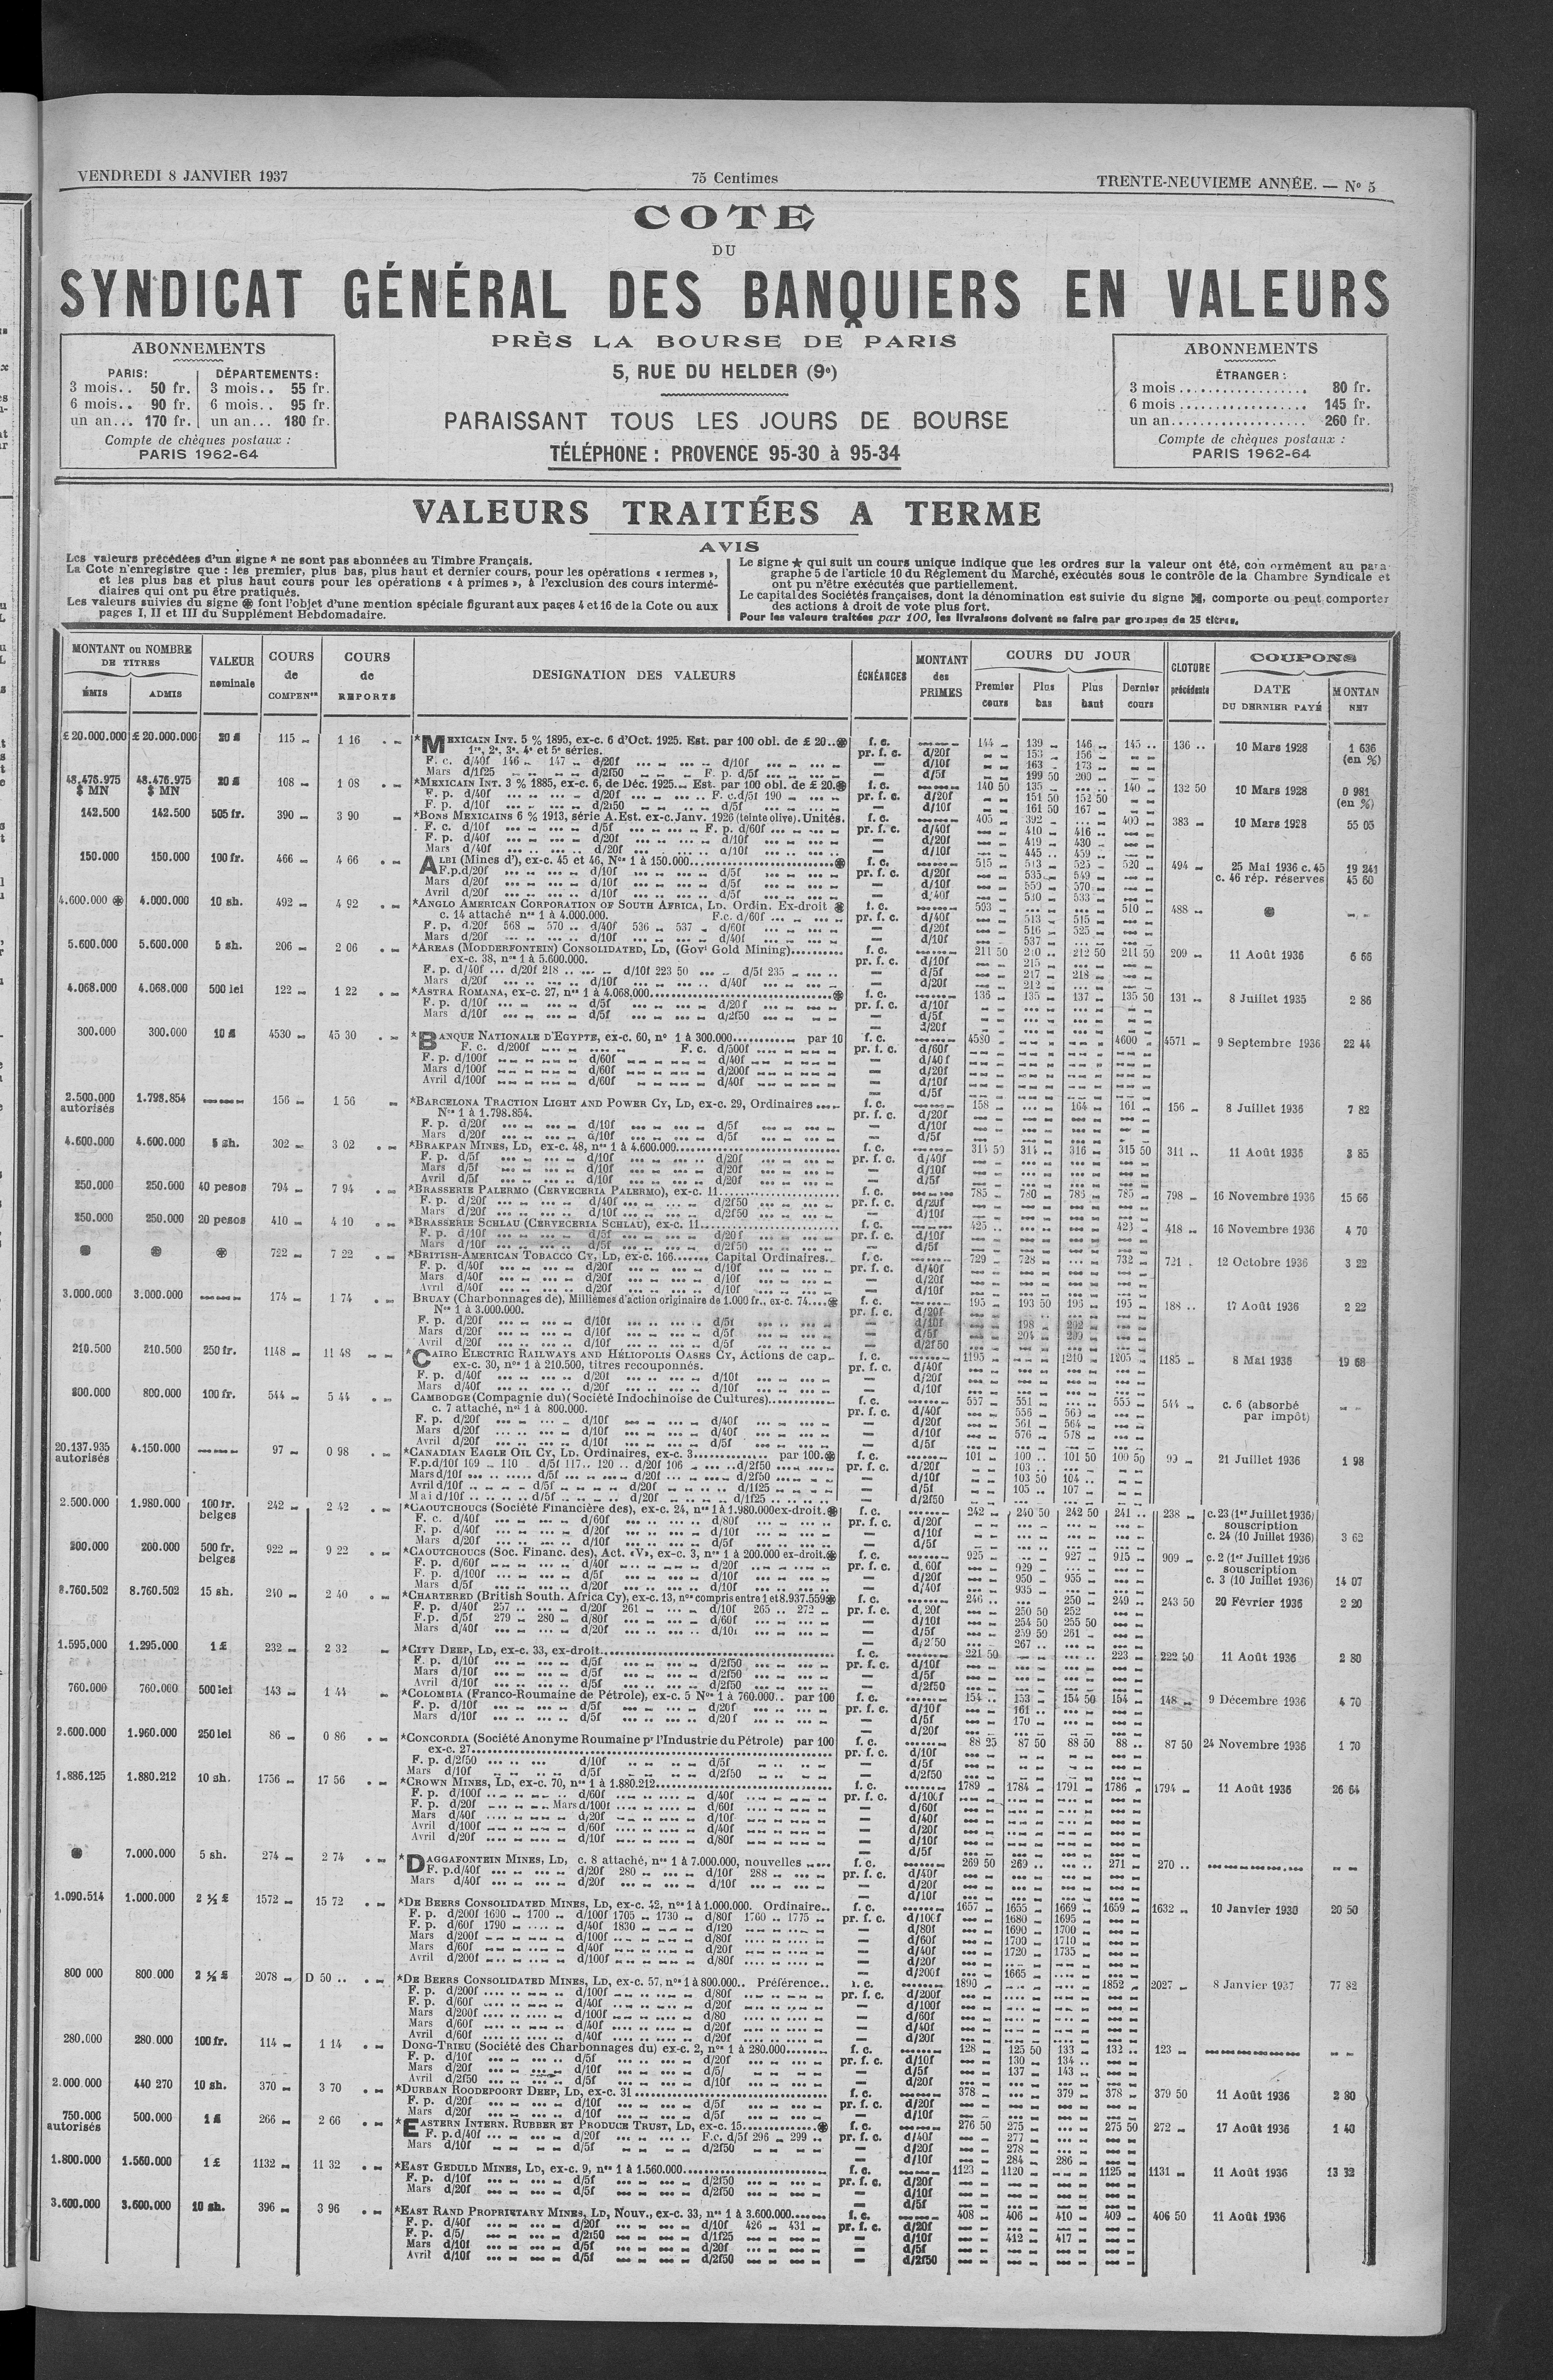 VENDREDI 8 JANVIER 1937
75 Centimes
TRENTE-NEUVIEME ANNÉE. — N° 5
COTE
DU
SYNDICAT GÉNÉRAL DES BANQUIERS EN VALEURS
PRÈS LA BOURSE DE PARIS
5, RUE DU HELDER (9e)
PARAISSANT TOUS LES JOURS DE BOURSE
TÉLÉPHONE : PROVENCE 95-30 à 95-34
ABONNEMENTS
PARIS: DÉPARTEMENTS:
3 mois.. 50 fr. 3 mois.. 55 fr.
6 mois.. 90 fr. 6 mois.. 95 fr.
un an... 170 fr. un an... 180 fr.
Compte de chèques postaux :
PARIS 1962-64
ABONNEMENTS
ÉTRANGER :
3 mois.................. 80 fr.
6 mois.................. 145 fr.
un an................... 260 fr.
Compte de chèques postaux :
PARIS 1962-64
VALEURS TRAITÉES A TERME
AVIS
Les valeurs précédées d'un signe * ne sont pas abonnées au Timbre Français.
La Cote n'enregistre que : les premier, plus bas, plus haut et dernier cours, pour les opérations « fermes »,
et les plus bas et plus haut cours pour les opérations « à primes », à l'exclusion des cours intermé-
diaires qui ont pu être pratiqués.
Les valeurs suivies du signe ⊛ font l'objet d'une mention spéciale figurant aux pages 4 et 16 de la Cote ou aux
pages I, II et III du Supplément Hebdomadaire.
Le signe ★ qui suit un cours unique indique que les ordres sur la valeur ont été, conformément au para-
graphe 5 de l'article 10 du Réglement du Marché, exécutés sous le contrôle de la Chambre Syndicale et
ont pu n'être exécutés que partiellement.
Le capital des Sociétés françaises, dont la dénomination est suivie du signe, comporte ou peut comporter
des actions à droit de vote plus fort.
Pour les valeurs traitées par 100, les livraisons doivent se faire par groupes de 25 titres.
MONTANT ou NOMBRE DE TITRES
ÉMIS ADMIS
VALEUR nominale
COURS de COMPENon
COURS de REPORTS
DESIGNATION DES VALEURS
ÉCHÉANCES
MONTANT des PRIMES
COURS DU JOUR
Premier cours Plus bas Plus haut Dernier cours
CLOTURE précédente
COUPONS
DATE DU DERNIER PAYÉ
MONTAN NET
£ 20.000.000 £ 20.000.000 20 £ 115 1 16 *MEXICAIN INT. 5 % 1895, ex-c. 6 d'Oct. 1925. Est. par 100 obl. de £ 20..⊛ f. c. 144 139 146 145 136 10 Mars 1928 1 636
1re, 2e, 3e, 4e et 5e séries. pr. f. c. d/20f 153 156 (en %)
F. c. d/40f 146 147 d/20f d/10f d/10f 163 173
Mars d/1f25 d/2f50 F. p. d/5f d/5f 199 50 200
48.476.975 $ MN 48.476.975 $ MN 20 £ 108 1 08 *MEXICAIN INT. 3 % 1885, ex-c. 6, de Déc. 1925. Est. par 100 obl. de £ 20.⊛ f. c. 140 50 135 140 132 50 10 Mars 1928 0 981 (en %)
F. p. d/40f d/20f F. c. d/5f 190 pr. f. c. d/20f 151 50 152 50
F. p. d/10f d/2f50 d/5f d/10f 161 50 167
142.500 142.500 505 fr. 390 3 90 *BONS MEXICAINS 6 % 1913, série A. Est. ex-c. Janv. 1926 (teinte olive). Unités. f. c. 405 392 400 383 10 Mars 1928 55 05
F. c. d/10f d/5f F. p. d/60f pr. f. c. d/40f 410 416
F. p. d/40f d/20f d/10f d/20f 419 430
Mars d/40f d/20f d/10f d/10f 445 459
150.000 150.000 100 fr. 466 4 66 ALBI (Mines d'), ex-c. 45 et 46, Nos 1 à 150.000 ⊛ f. c. 515 513 525 520 494 25 Mai 1936 c. 45 19 241
F. p. d/20f d/10f d/5f pr. f. c. d/20f 535 549 c. 46 rép. réserves 45 60
Mars d/20f d/10f d/5f d/10f 559 570
Avril d/20f d/10f d/5f d/40f 530 533
4.600.000 ⊛ 4.000.000 10 sh. 492 4 92 *ANGLO AMERICAN CORPORATION OF SOUTH AFRICA, LD. Ordin. Ex-droit ⊛ f. c. 503 510 488 ⊛
c. 14 attaché nos 1 à 4.000.000. F.c. d/60f pr. f. c. d/40f 513 515
F. p. d/20f 568 570 d/40f 536 537 d/60f d/20f 516 525
Mars d/20f d/10f d/40f d/10f 537
5.600.000 5.600.000 5 sh. 206 2 06 *AREAS (MODDERFONTEIN) CONSOLIDATED, LD, (Govt Gold Mining) f. c. 211 50 210 212 50 211 50 209 11 Août 1936 6 66
ex-c. 38, nos 1 à 5.600.000. pr. f. c. d/10f 215
F. p. d/40f d/20f 218 d/10f 223 50 d/5f 235 d/5f 217 218
Mars d/20f d/10f d/40f d/20f 212
4.068.000 4.068.000 500 lei 122 1 22 *ASTRA ROMANA, ex-c. 27, nos 1 à 4.068.000 ⊛ f. c. 136 135 137 135 50 131 8 Juillet 1935 2 86
F. p. d/10f d/5f d/20f pr. f. c. d/10f
Mars d/10f d/5f d/2f50 d/5f
d/20f
300.000 300.000 10 £ 4530 45 30 *BANQUE NATIONALE D'EGYPTE, ex-c. 60, no 1 à 300.000 par 10 f. c. 4580 4600 4571 9 Septembre 1936 22 44
F. c. d/200f F. c. d/500f pr. f. c. d/60f
F. p. d/100f d/60f d/40f d/40f
Mars d/100f d/60f d/200f d/20f
Avril d/100f d/60f d/40f d/10f
d/5f
2.500.000 autorisés 1.798.854 156 1 56 *BARCELONA TRACTION LIGHT AND POWER CY, LD, ex-c. 29, Ordinaires f. c. 158 164 161 156 8 Juillet 1936 7 82
Nos 1 à 1.798.854. pr. f. c. d/20f
F. p. d/20f d/10f d/5f d/10f
Mars d/20f d/10f d/5f d/5f
4.600.000 4.600.000 5 sh. 302 3 02 *BRAKPAN MINES, LD, ex-c. 48, nos 1 à 4.600.000 f. c. 314 50 314 316 315 50 311 11 Août 1936 3 85
F. p. d/5f d/10f d/20f pr. f. c. d/40f
Mars d/5f d/10f d/20f d/10f
Avril d/5f d/10f d/20f d/5f
250.000 250.000 40 pesos 794 7 94 *BRASSERIE PALERMO (CERVECERIA PALERMO), ex-c. 11 f. c. 785 780 785 785 798 16 Novembre 1936 15 66
F. p. d/20f d/40f d/2f50 pr. f. c. d/20f
Mars d/20f d/10f d/2f50 d/10f
250.000 250.000 20 pesos 410 4 10 *BRASSERIE SCHLAU (CERVECERIA SCHLAU), ex-c. 11 f. c. 425 423 418 16 Novembre 1936 4 70
F. p. d/10f d/5f d/20f pr. f. c. d/10f
Mars d/10f d/5f d/2f50 d/5f
⊛ ⊛ ⊛ 722 7 22 *BRITISH-AMERICAN TOBACCO CY, LD, ex-c. 166 Capital Ordinaires f. c. 729 728 732 721 12 Octobre 1936 3 22
F. p. d/40f d/20f d/10f pr. f. c. d/40f
Mars d/40f d/20f d/10f d/20f
Avril d/40f d/20f d/10f d/10f
3.000.000 3.000.000 174 1 74 BRUAY (Charbonnages de), Millièmes d'action originaire de 1.000 fr., ex-c. 74 ⊛ f. c. 195 193 50 196 195 188 17 Août 1936 2 22
Nos 1 à 3.000.000. pr. f. c. d/20f
F. p. d/20f d/10f d/5f d/10f 198 202
Mars d/20f d/10f d/5f d/5f 204 209
Avril d/20f d/10f d/5f d/2f50
210.500 210.500 250 fr. 1148 11 48 *CAIRO ELECTRIC RAILWAYS AND HÉLIOPOLIS OASES CY, Actions de cap. f. c. 1195 1210 1205 1185 8 Mai 1936 19 68
ex-c. 30, nos 1 à 210.500, titres recouponnés. pr. f. c. d/40f
F. p. d/40f d/20f d/10f d/20f
Mars d/40f d/20f d/10f d/10f
800.000 800.000 100 fr. 544 5 44 CAMBODGE (Compagnie du) (Société Indochinoise de Cultures) f. c. 557 551 555 544 c. 6 (absorbé par impôt)
c. 7 attaché, nos 1 à 800.000. pr. f. c. d/40f 556 560
F. p. d/20f d/10f d/40f d/20f 561 564
Mars d/20f d/10f d/40f d/10f 576 578
Avril d/20f d/10f d/5f d/5f
20.137.935 autorisés 4.150.000 97 0 98 *CANADIAN EAGLE OIL CY, LD. Ordinaires, ex-c. 3 par 100.⊛ f. c. 101 100 101 50 100 50 99 21 Juillet 1936 1 98
F.p. d/10f 109 110 d/5f 117 120 d/20f 106 d/2f50 pr. f. c. d/20f 103
Mars d/10f d/5f d/20f d/2f50 d/10f 103 50 104
Avril d/10f d/5f d/20f d/1f25 d/5f 105 107
Mai d/10f d/5f d/20f d/1f25 d/2f50
2.500.000 1.980.000 100 fr. belges 242 2 42 *CAOUTCHOUCS (Société Financière des), ex-c. 24, nos 1 à 1.980.000 ex-droit.⊛ f. c. 242 240 50 242 50 241 238 c. 23 (1er Juillet 1936) souscription
F. c. d/40f d/60f d/80f pr. f. c. d/20f
F. p. d/40f d/20f d/10f d/10f c. 24 (10 Juillet 1936) 3 62
Mars d/20f d/10f d/5f d/5f
200.000 200.000 500 fr. belges 922 9 22 *CAOUTCHOUCS (Soc. Financ. des), Act. «V», ex-c. 3, nos 1 à 200.000 ex-droit.⊛ f. c. 925 927 915 909 c. 2 (1er Juillet 1936 souscription
F. p. d/60f d/40f d/20f pr. f. c. d/60f 929
F. p. d/100f d/5f d/10f d/20f 950 955 c. 3 (10 Juillet 1936) 14 07
Mars d/5f d/20f d/10f d/40f 935
8.760.502 8.760.502 15 sh. 240 2 40 *CHARTERED (British South. Africa Cy), ex-c. 13, nos compris entre 1 et 8.937.559⊛ f. c. 246 250 249 243 50 20 Février 1936 2 20
F. p. d/40f 257 d/20f 261 d/10f 265 272 pr. f. c. d/20f 250 50 252
F. p. d/5f 279 280 d/80f d/60f d/10f 254 50 255 50
Mars d/40f d/20f d/10f d/5f 259 50 261
d/2f50 267
1.595.000 1.295.000 1 £ 232 2 32 *CITY DEEP, LD, ex-c. 33, ex-droit f. c. 221 50 223 222 50 11 Août 1936 2 80
F. p. d/10f d/5f d/2f50 pr. f. c. d/10f
Mars d/10f d/5f d/2f50 d/5f
Avril d/10f d/5f d/2f50 d/2f50
760.000 760.000 500 lei 143 1 44 *COLOMBIA (Franco-Roumaine de Pétrole), ex-c. 5 Nos 1 à 760.000.. par 100 f. c. 154 153 154 50 154 148 9 Décembre 1936 4 70
F. p. d/10f d/5f d/20f pr. f. c. d/10f 161
Mars d/10f d/5f d/20f d/5f 170
d/20f
2.600.000 1.960.000 250 lei 86 0 86 *CONCORDIA (Société Anonyme Roumaine pr l'Industrie du Pétrole) par 100 f. c. 88 25 87 50 88 50 88 87 50 24 Novembre 1936 1 70
ex-c. 27 pr. f. c. d/10f
F. p. d/2f50 d/10f d/5f d/5f
Mars d/10f d/5f d/2f50 d/2f50
1.886.125 1.880.212 10 sh. 1756 17 56 *CROWN MINES, LD, ex-c. 70, nos 1 à 1.880.212 f. c. 1789 1784 1791 1786 1794 11 Août 1936 26 64
F. p. d/100f d/60f d/40f pr. f. c. d/100f
F. p. d/20f Mars d/100f d/60f d/60f
Mars d/40f d/20f d/10f d/40f
Avril d/100f d/60f d/40f d/20f
Avril d/20f d/10f d/80f d/10f
d/5f
⊛ 7.000.000 5 sh. 274 2 74 *DAGGAFONTEIN MINES, LD, c. 8 attaché, nos 1 à 7.000.000, nouvelles f. c. 269 50 269 271 270
F. p. d/40f d/20f 280 d/10f 288 pr. f. c. d/40f
Mars d/40f d/20f d/10f d/20f
d/10f
1.090.514 1.000.000 2 ½ £ 1572 15 72 *DE BEERS CONSOLIDATED MINES, LD, ex-c. 42, nos 1 à 1.000.000. Ordinaire.. f. c. 1657 1655 1669 1659 1632 10 Janvier 1930 20 50
F. p. d/200f 1690 1700 d/100f 1705 1730 d/80f 1760 1775 pr. f. c. d/100f 1680 1695
F. p. d/60f 1790 d/40f 1830 d/120 d/80f 1690 1700
Mars d/200f d/100f d/80f d/60f 1700 1710
Mars d/60f d/40f d/20f d/40f 1720 1735
Avril d/200f d/100f d/80f d/20f
d/200f 1665
800 000 800.000 2 ½ £ 2078 D 50 *DE BEERS CONSOLIDATED MINES, LD, ex-c. 57, nos 1 à 800.000.. Préférence.. f. c. 1890 1852 2027 8 Janvier 1937 77 82
F. p. d/200f d/100f d/80f pr. f. c. d/200f
F. p. d/60f d/40f d/20f d/100f
Mars d/200f d/100f d/80 d/60f
Mars d/60f d/40f d/20f d/40f
Avril d/60f d/40f d/20f d/20f
280.000 280.000 100 fr. 114 1 14 DONG-TRIEU (Société des Charbonnages du) ex-c. 2, nos 1 à 280.000 f. c. 128 125 50 133 132 123
F. p. d/10f d/5f d/20f pr. f. c. d/10f 130 134
Mars d/20f d/10f d/5/ d/5f 137 143
Avril d/2f50 d/5f d/10f d/20f
2.000.000 440 270 10 sh. 370 3 70 *DURBAN ROODEPOORT DEEP, LD, ex-c. 31 f. c. 378 379 378 379 50 11 Août 1936 2 80
F. p. d/20f d/10f d/5f pr. f. c. d/20f
Mars d/20f d/10f d/5f d/10f
750.000 autorisés 500.000 1 £ 266 2 66 *EASTERN INTERN. RUBBER ET PRODUCE TRUST, LD, ex-c. 15 ⊛ f. c. 276 50 275 275 50 272 17 Août 1936 1 40
F. p. d/40f d/20f F.c. d/5f 296 299 pr. f. c. d/40f 277
Mars d/10f d/5f d/2f50 d/20f 278
d/10f 284 286
1.800.000 1.560.000 1 £ 1132 11 32 *EAST GEDULD MINES, LD, ex-c. 9, nos 1 à 1.560.000 f. c. 1123 1120 1125 1131 11 Août 1936 13 32
F. p. d/10f d/5f d/2f50 pr. f. c. d/20f
Mars d/20f d/5f d/2f50 d/10f
d/5f
3.600.000 3.600.000 10 sh. 396 3 96 *EAST RAND PROPRIETARY MINES, LD, Nouv., ex-c. 33, nos 1 à 3.600.000 f. c. 408 406 410 409 406 50 11 Août 1936
F. p. d/40f d/20f d/10f 426 431 pr. f. c. d/20f
F. p. d/5/ d/2f50 d/1f25 d/10f 412 417
Mars d/10f d/5f d/20f d/5f
Avril d/10f d/5f d/2f50 d/2f50